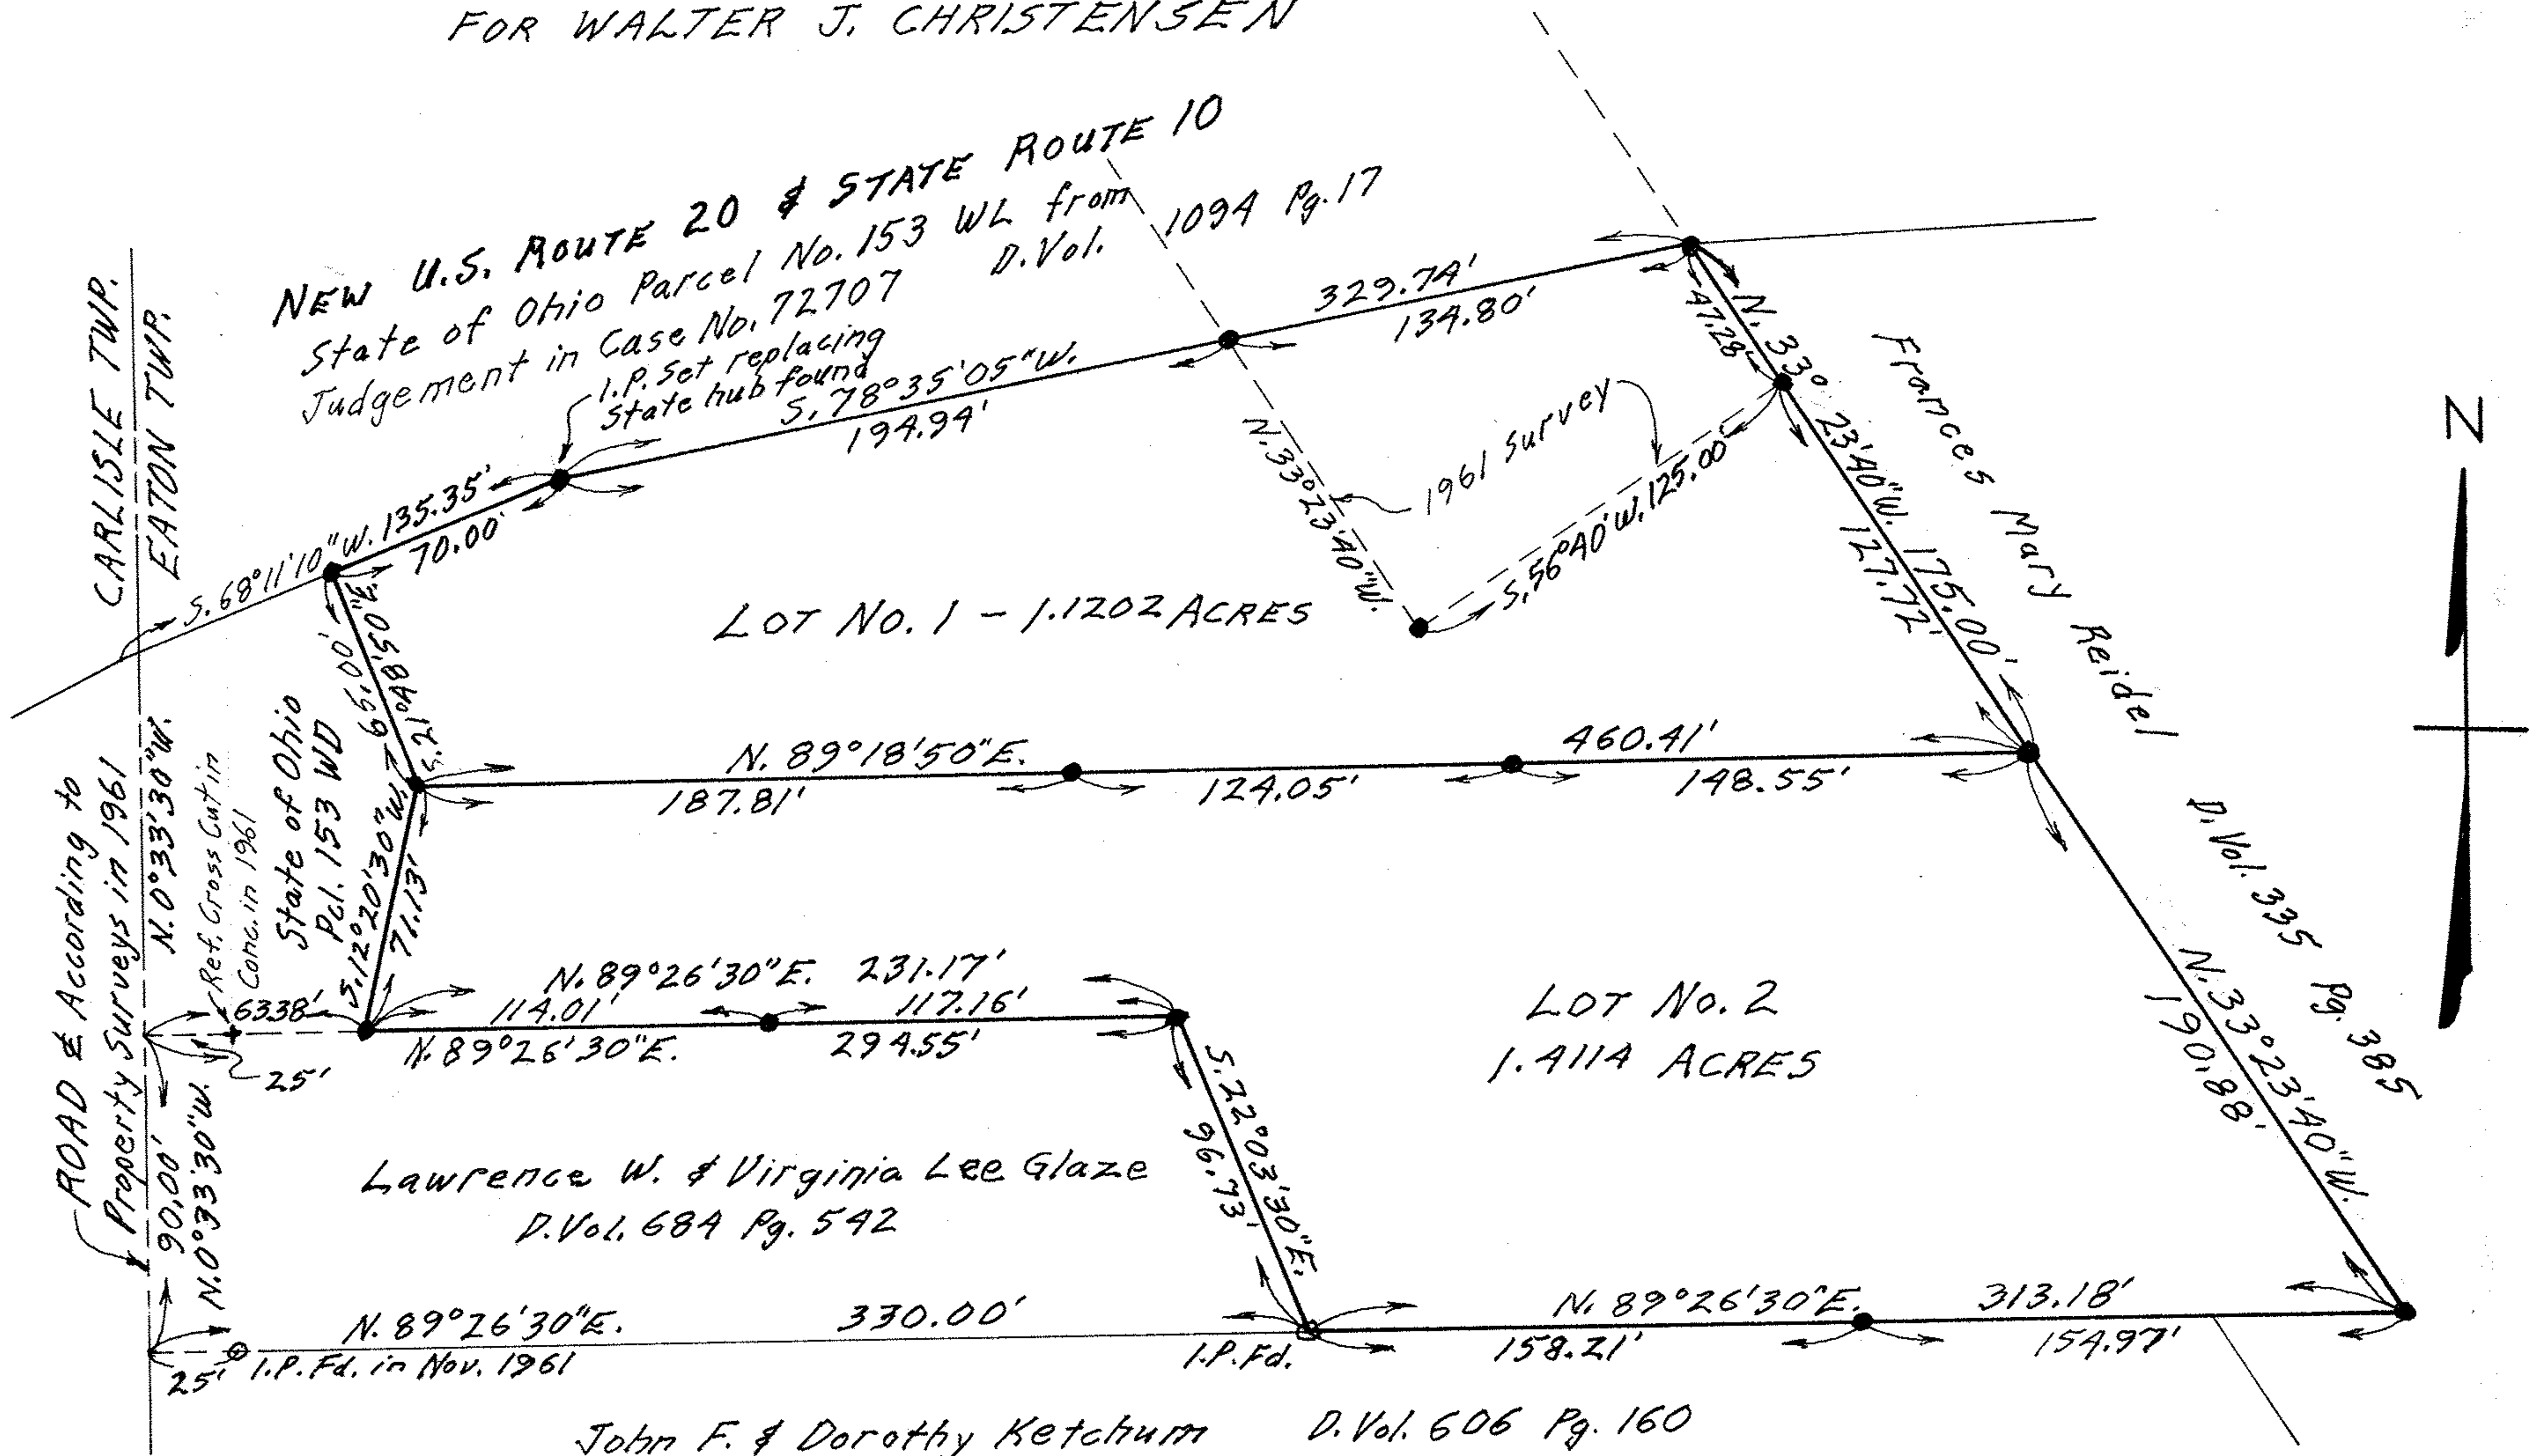 FOR WALTER J. CHRISTENSEN
NEW U.S. ROUTE 20 & STATE ROUTE 10
State of Ohio Parcel No. 153 WL from
Judgement in Case No. 72707 D.Vol. 1094 Pg. 17
I.P. Set replacing
State hub found
S. 78°35'05"W.
194.94'
329.74'
134.80'
CARLISLE TWP.
EATON TWP.
S. 68°11'10"W. 135.35'
70.00'
47.28'
N. 33° 23'40"W. 175.00'
127.72'
Frances Mary Reidel D.Vol. 335 Pg. 385
N
N. 33°23'40"W.
1961 survey
S. 56°40'W. 125.00'
LOT No. 1 - 1.1202 ACRES
S. 21°48'50"E.
65.00'
N. 89°18'50"E.
460.41'
187.81'
124.05'
148.55'
State of Ohio
Pcl. 153 WD
S. 12°20'30"W.
71.13'
ROAD ₵ According to
Property Surveys in 1961
N. 0°33'30"W.
Ref. Cross Cut in
Conc. in 1961
63.38'
25'
N. 89°26'30"E. 231.17'
114.01'
117.16'
N. 89°26'30"E.
294.55'
LOT No. 2
1.4114 ACRES
N. 33°23'40"W.
190.88'
90.00'
N. 0°33'30"W.
Lawrence W. & Virginia Lee Glaze
D.Vol. 684 Pg. 542
S. 22°03'30"E.
96.73'
N. 89°26'30"E.
330.00'
25'
I.P. Fd. in Nov. 1961
I.P. Fd.
N. 89°26'30"E.
313.18'
158.21'
154.97'
John F. & Dorothy Ketchum D.Vol. 606 Pg. 160